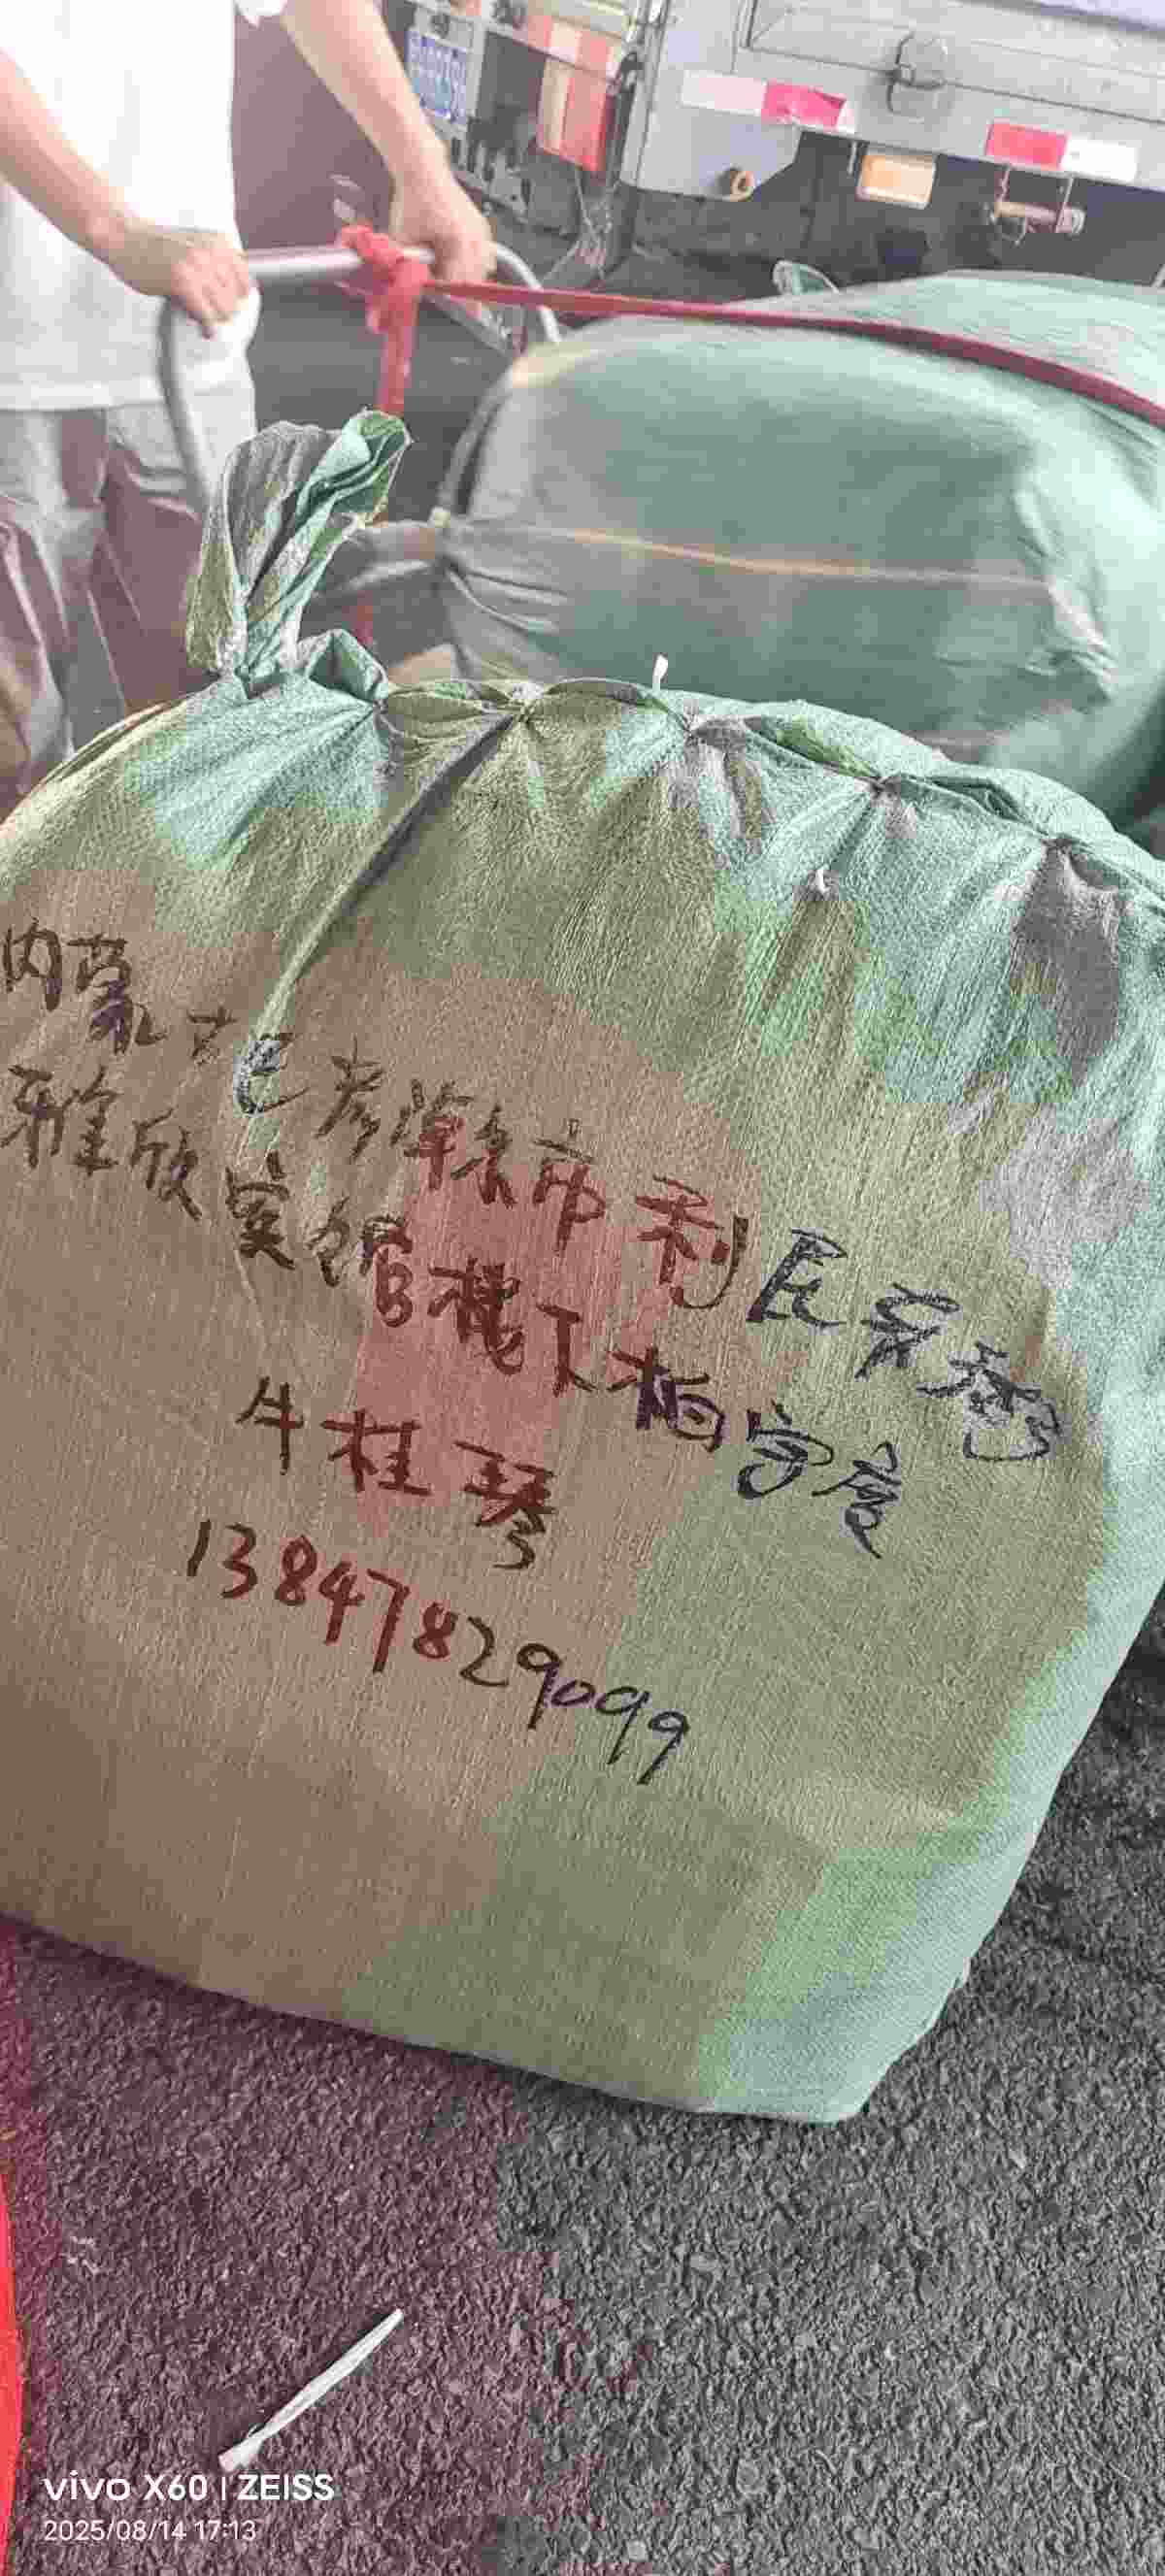 内蒙古巴彦淖尔市利民家苑
雅欣宾馆楼下柏字度
牛桂琴
13847829099
vivo X60 | ZEISS
2025/08/14 17:13